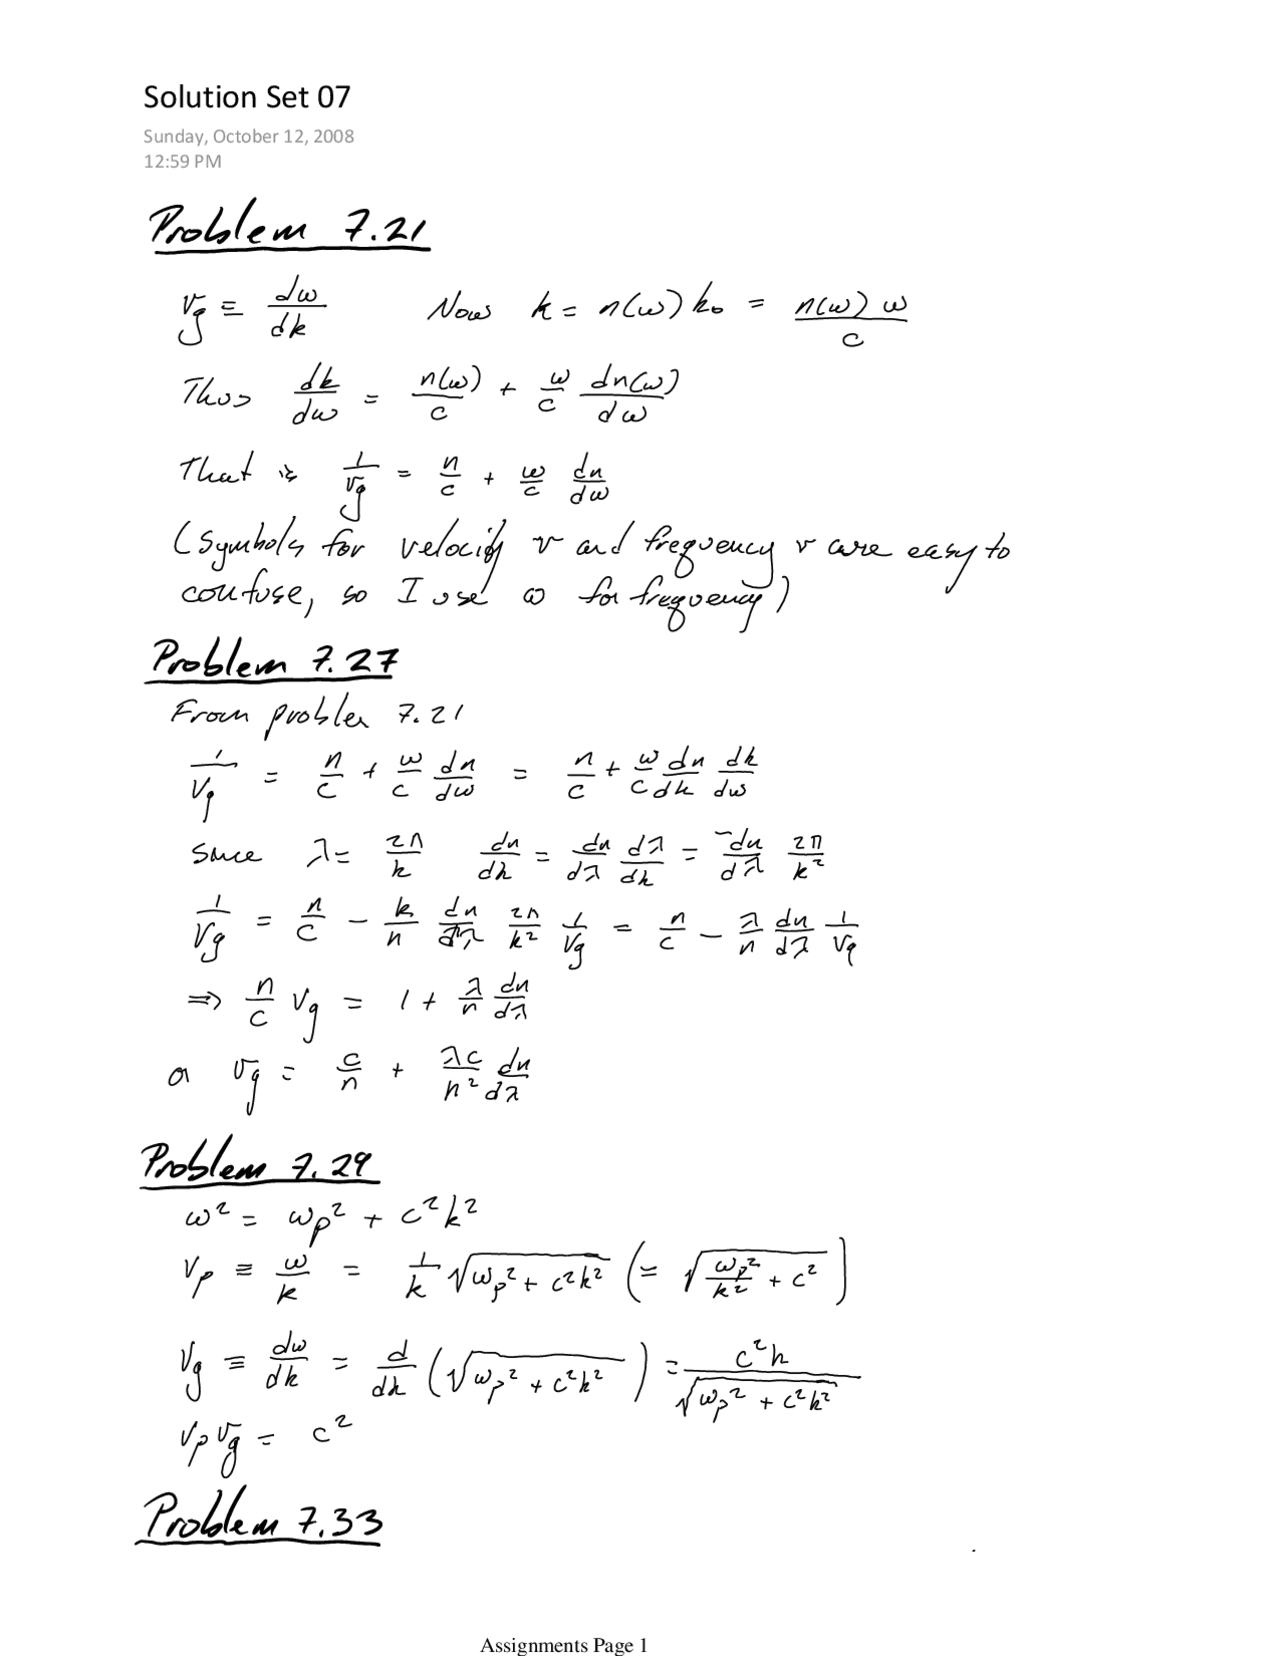 Solution Set 07
Sunday, October 12, 2008
12:59 PM
Problem 7.21
v_g ≡ dω/dk Now k = n(ω) k₀ = n(ω) ω / c
Thus dk/dω = n(ω)/c + ω/c dn(ω)/dω
That is 1/v_g = n/c + ω/c dn/dω
(Symbols for velocity v and frequency ν are easy to
confuse, so I use ω for frequency)
Problem 7.27
From problem 7.21
1/v_g = n/c + ω/c dn/dω = n/c + ω/c dn/dk dk/dω
Since λ = 2π/k dn/dk = dn/dλ dλ/dk = -dn/dλ 2π/k²
1/v_g = n/c - k/n dn/dλ 2π/k² 1/v_g = n/c - λ/n dn/dλ 1/v_g
⇒ n/c v_g = 1 + λ/n dn/dλ
or v_g = c/n + λc/n² dn/dλ
Problem 7.29
ω² = ω_p² + c²k²
v_p ≡ ω/k = 1/k √(ω_p² + c²k²) (= √(ω_p²/k² + c²))
v_g ≡ dω/dk = d/dk (√(ω_p² + c²k²)) = c²k / √(ω_p² + c²k²)
v_p v_g = c²
Problem 7.33
Assignments Page 1